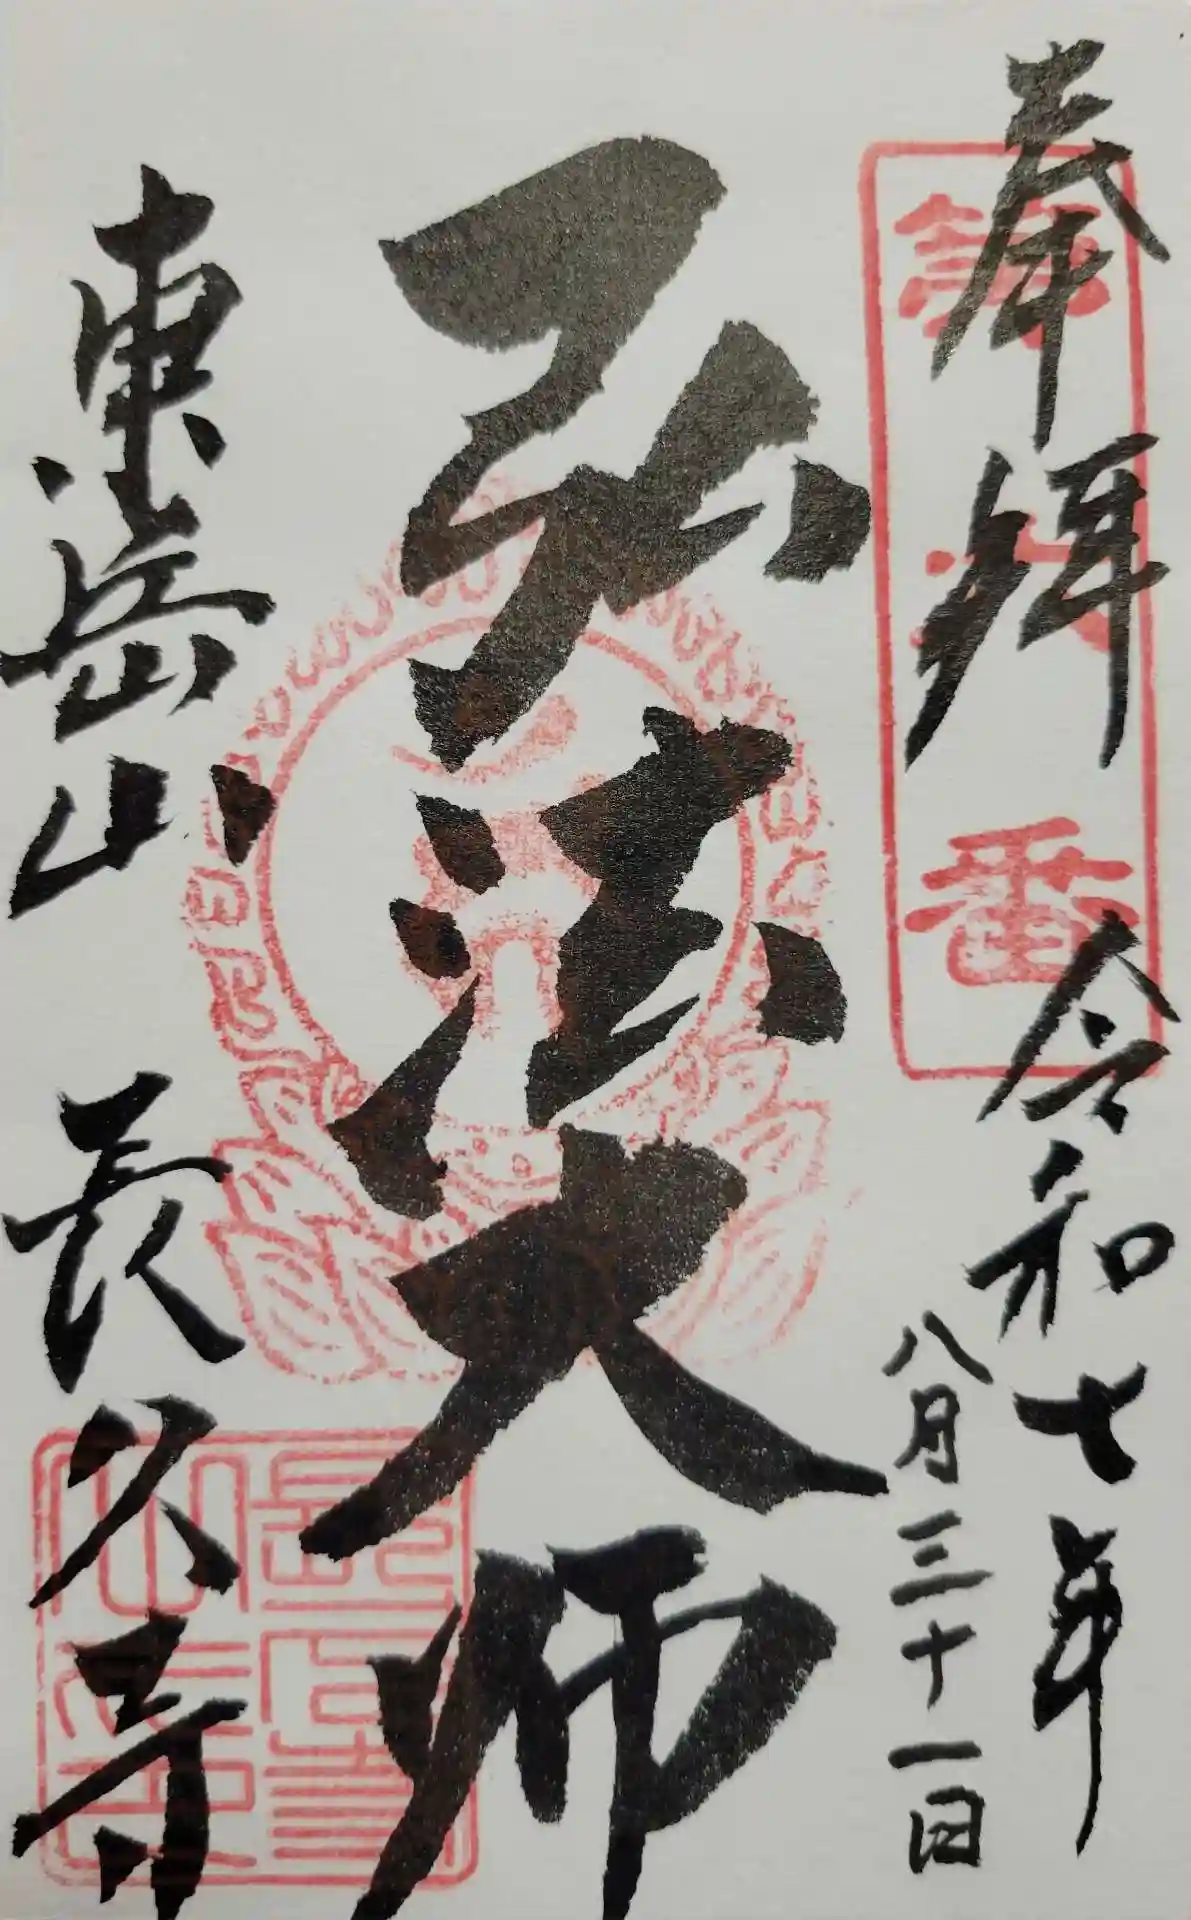 奉拝
令和七年
八月三十一日
弘法大師
東岳山 長久寺
番